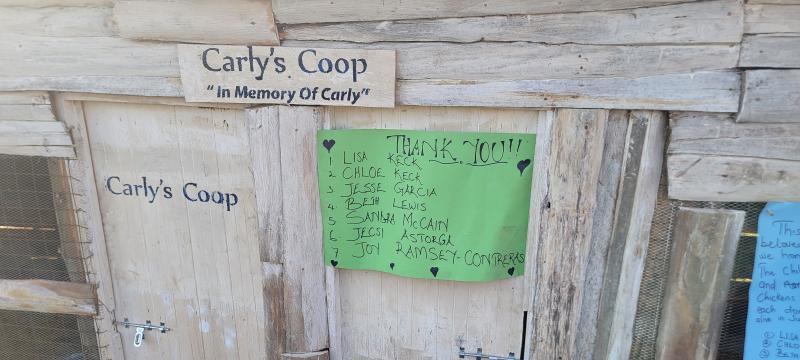 Carly's Coop
"In Memory Of Carly"
Carly's Coop
THANK YOU!!
1 LISA KECK
2 CHLOE KECK
3 JESSE GARCIA
4 BETH LEWIS
5 SANDRA MCCAIN
6 JECSI ASTORGA
7 JOY RAMSEY-CONTRERAS
This
belove
we hon
The Chi
and
Chickens
each do
alive in Ju
① LISA
② CHLO
③ BE